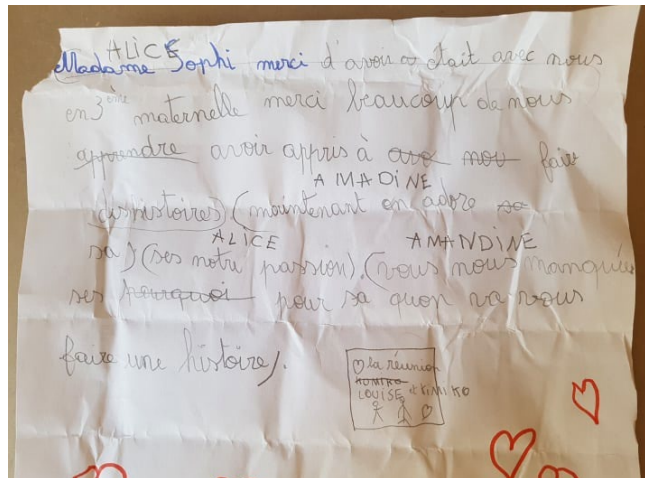 ALICE
Madame Sophi merci d'avoir était avec nous
en 3ème maternelle merci beaucoup de nous
apprendre avoir appris à avo nou faire
AMADINE
dispistoires) (maintenant on adore sa
ALICE AMANDINE
sa) (ses notre passion). (vous nous manquée
ses pourquoi pour sa quon va vous
faire une histoire).
la réunion
KUMIKO
LOUISE et KIMIKO